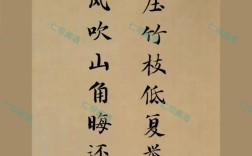 压竹枝低复举
风吹山角晦还